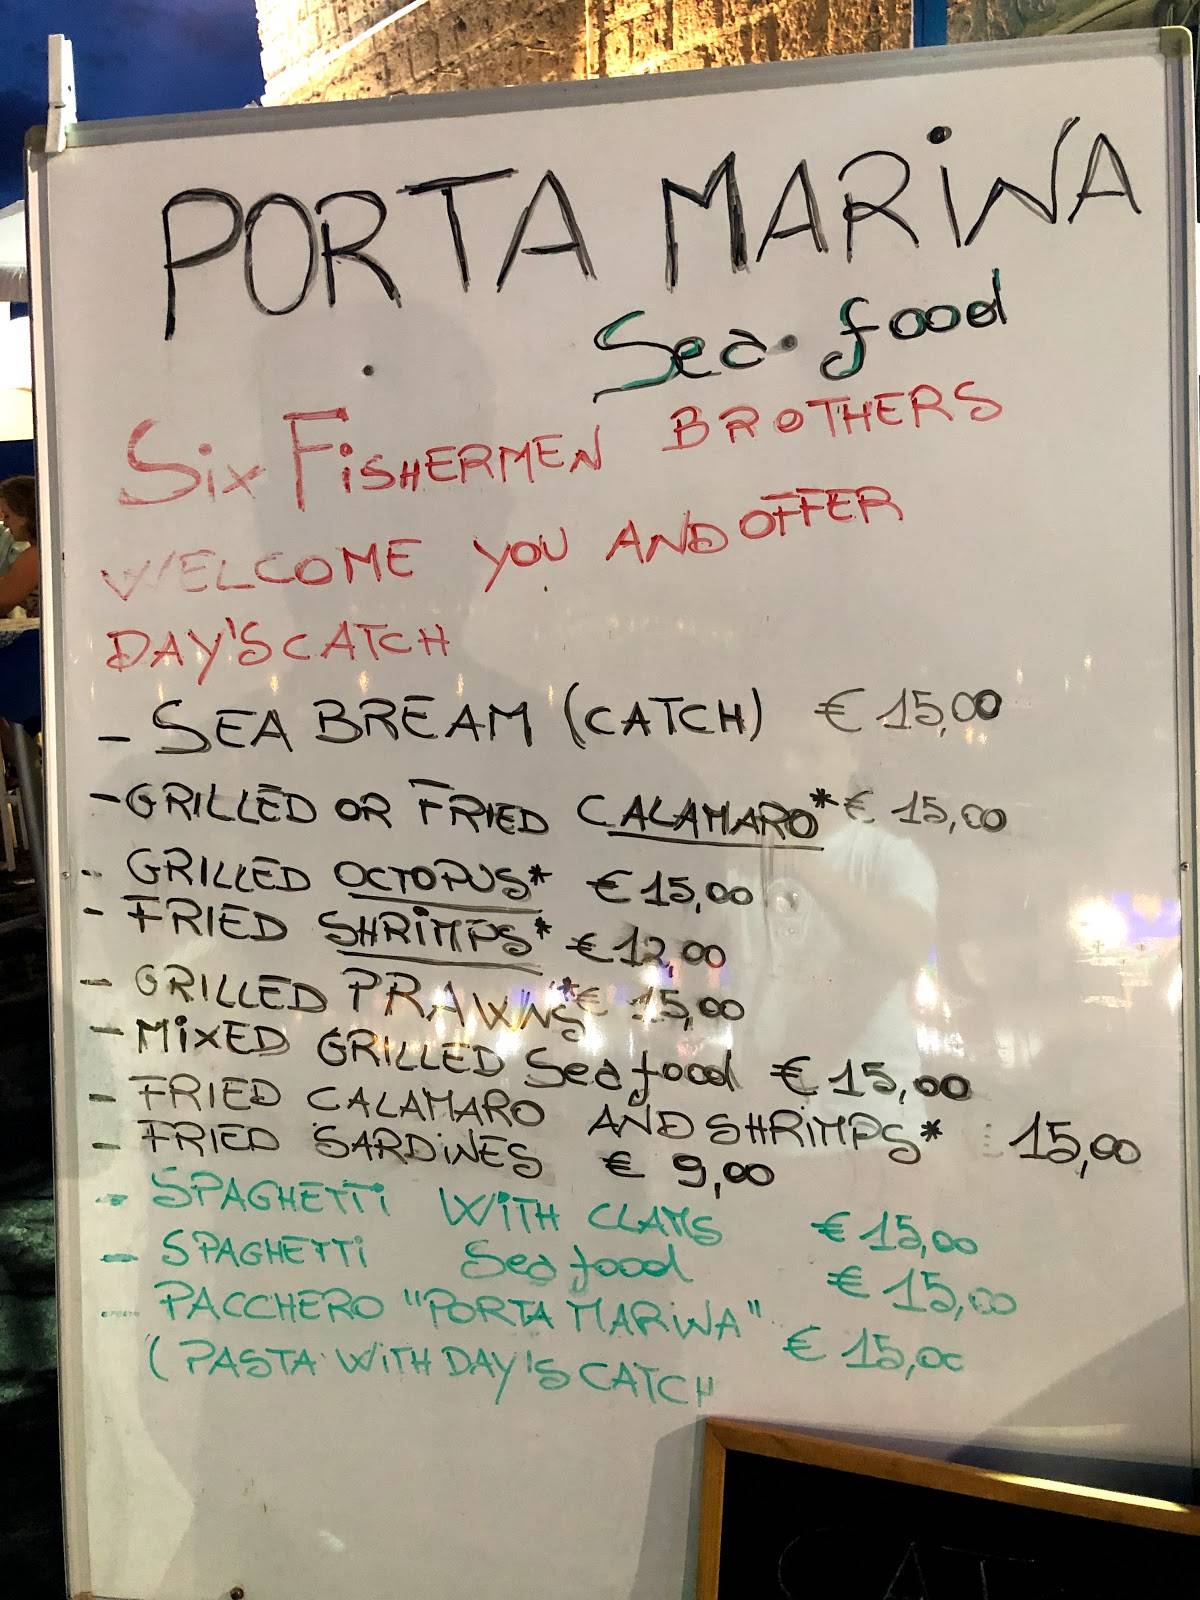 PORTA MARiNA
Sea food
Six FiSHERMEN BROTHERS
WELCOME YOU AND OFFER
DAY'S CATCH
- SEA BREAM (CATCH) € 15,00
- GRILLED OR FRIED CALAMARO* € 15,00
- GRILLED OCTOPUS* € 15,00
- FRIED SHRiMPS* € 12,00
- GRILLED PRAWNS* € 15,00
- MiXED GRILLED Sea food € 15,00
- FRIED CALAMARO AND SHRiMPS* 15,00
- FRIED SARDiNES € 9,00
- SPAGHETTi WiTH CLAMS € 15,00
- SPAGHETTi Sea food € 15,00
- PACCHERO "PORTA MARiNA" € 15,00
(PASTA WiTH DAY'S CATCH